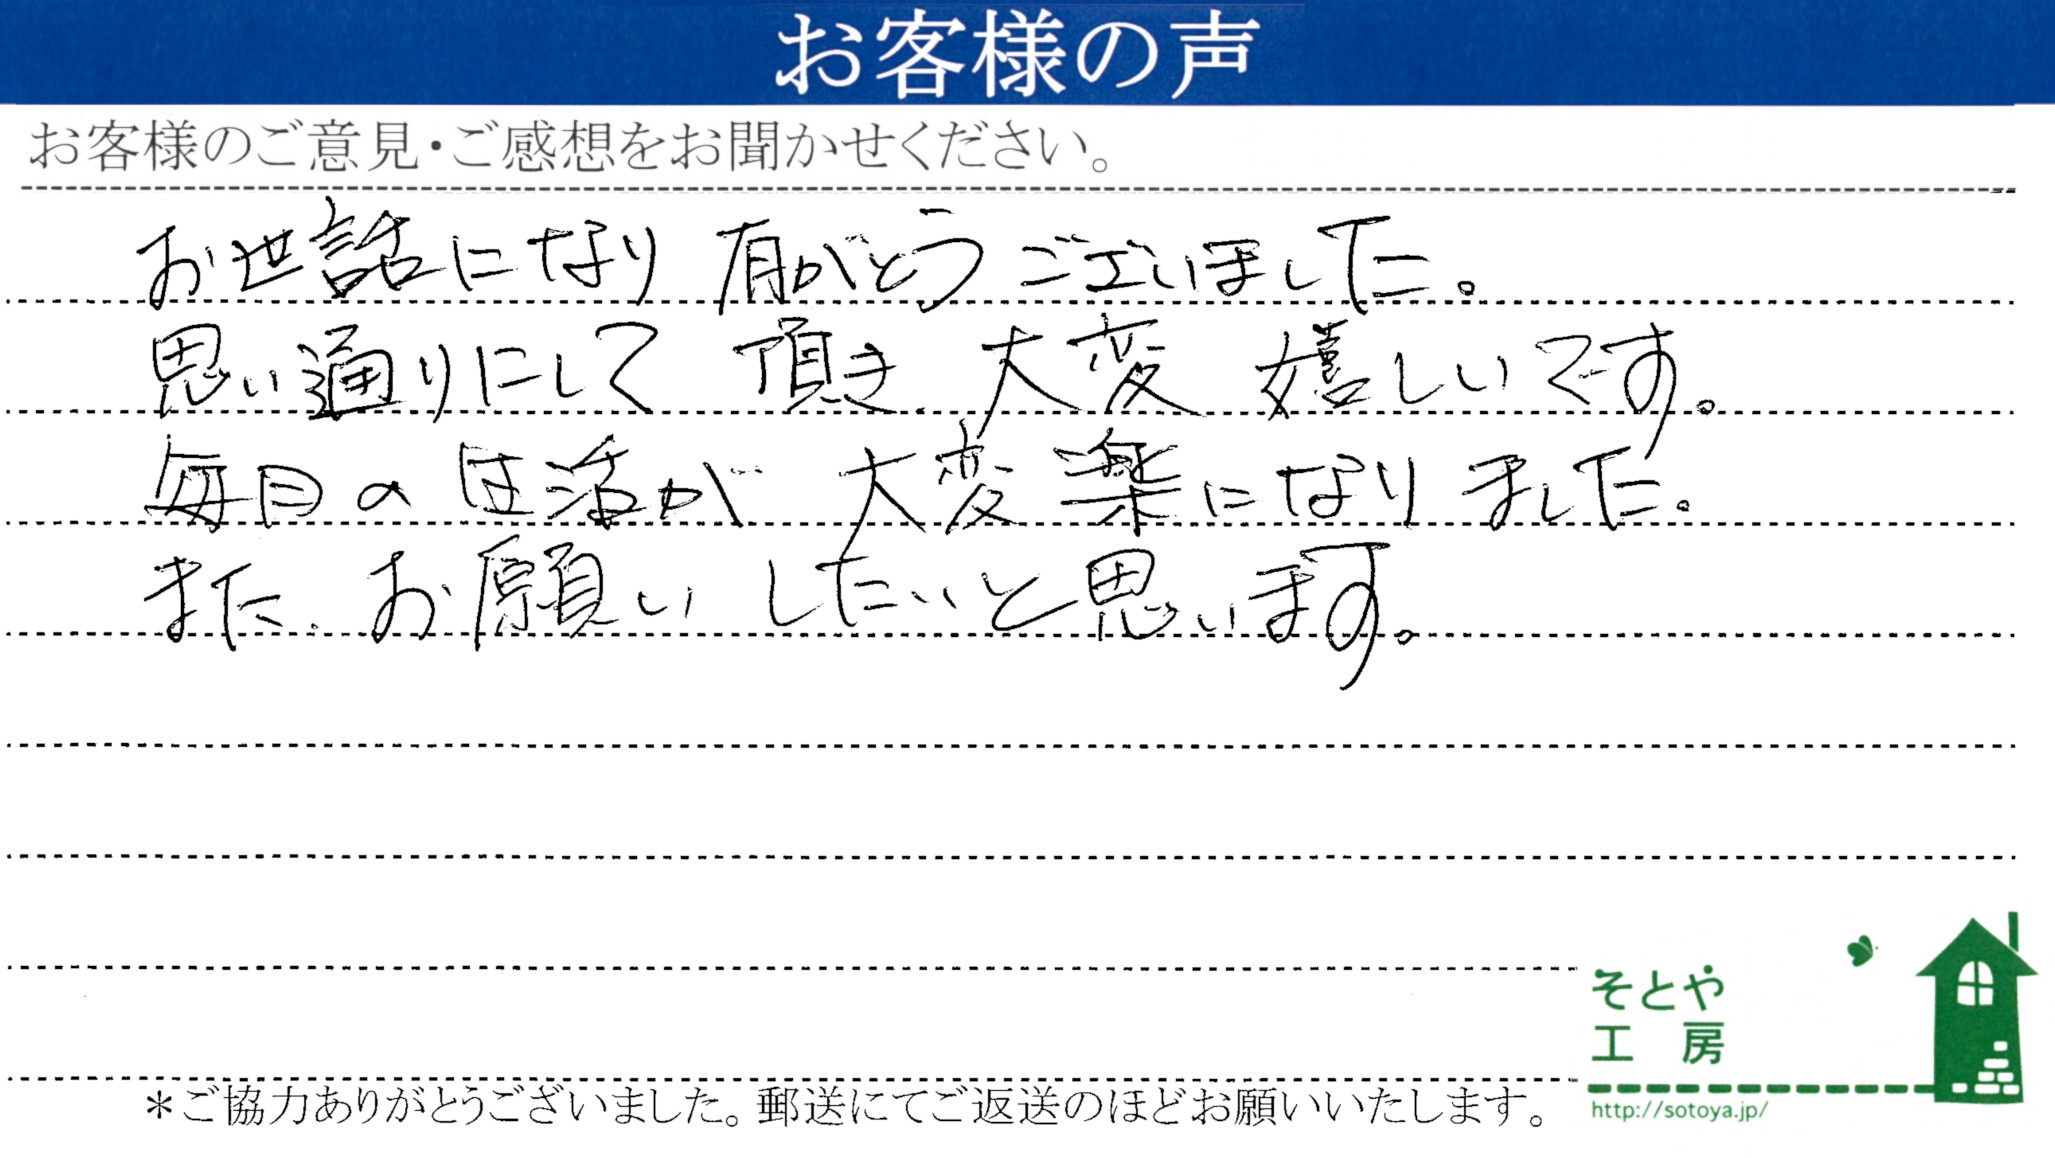 お客様の声
お客様のご意見・ご感想をお聞かせください。
お世話になり 有がとうございました。
思い通りにして 頂き、大変 嬉しいです。
毎日の 生活が 大変楽になりました。
また、お願い したいと思います。
そとや
工 房
＊ご協力ありがとうございました。郵送にてご返送のほどお願いいたします。
http://sotoya.jp/